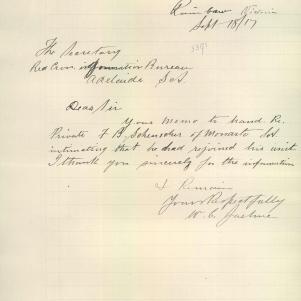 Rainbow Victoria
Sept 18/17
The Secretary
Red Cross Information Bureau
Adelaide S.A.
Dear Sir
Your Memo to hand Re.
Private F B of Monarto S.A.
intimating that he had rejoined his unit
I thank you sincerely for the information
I Remain
Yours Respectfully
W. C.